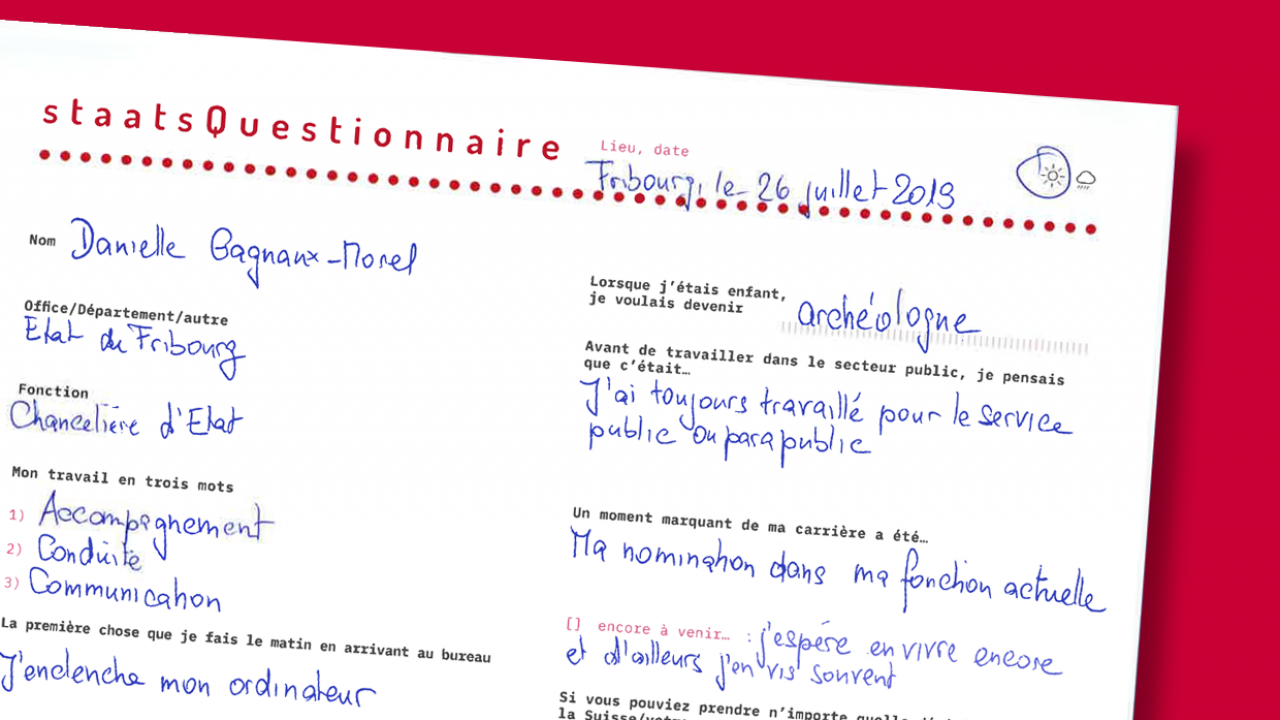 staatsQuestionnaire
Lieu, date
Fribourg, le 26 juillet 2019
Nom Danielle Gagnaux-Morel
Office/Département/autre
Etat de Fribourg
Fonction
Chancelière d'Etat
Mon travail en trois mots
1) Accompagnement
2) Conduite
3) Communication
La première chose que je fais le matin en arrivant au bureau
J'enclenche mon ordinateur
Lorsque j'étais enfant,
je voulais devenir archéologue
Avant de travailler dans le secteur public, je pensais
que c'était…
J'ai toujours travaillé pour le service
public ou parapublic
Un moment marquant de ma carrière a été…
Ma nomination dans ma fonction actuelle
[] encore à venir… : j'espère en vivre encore
et d'ailleurs j'en vis souvent
Si vous pouviez prendre n'importe quelle
la